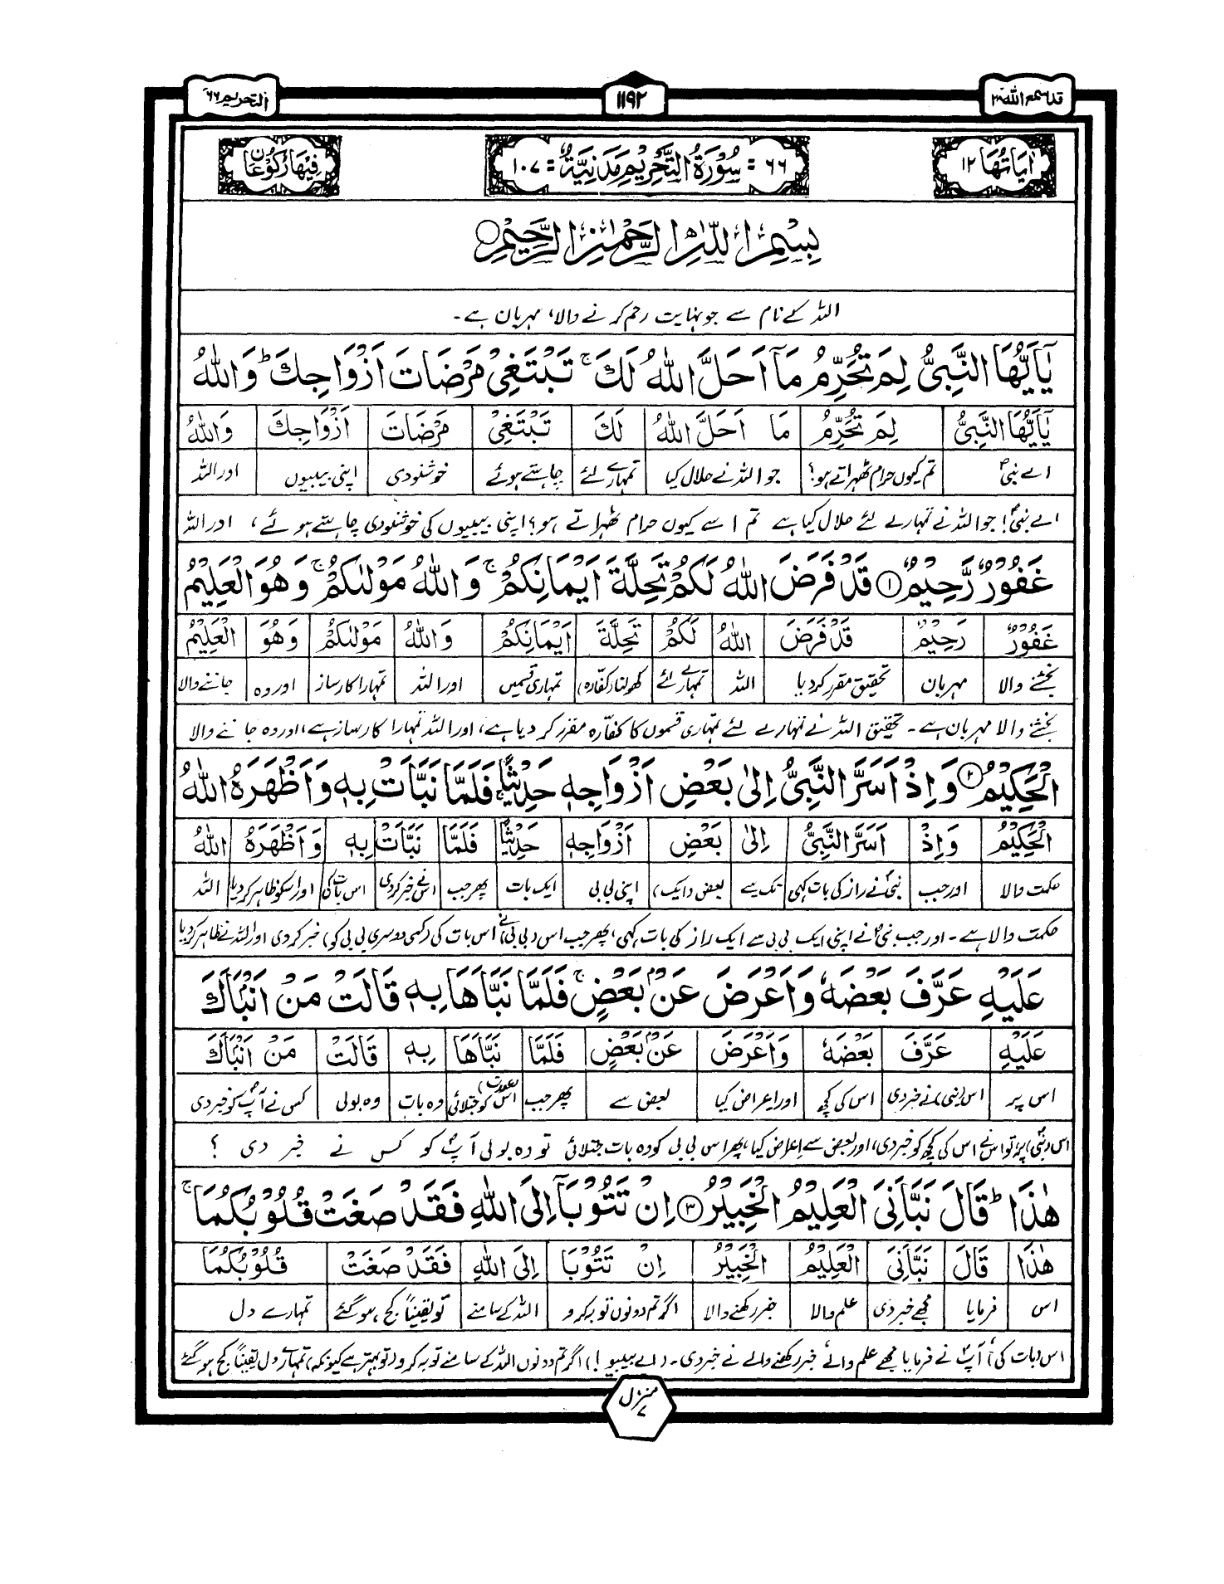 قد سمع الله ٢٨
١١٩٢
التحریم ٦٦
اٰیاتھا ١٢
٦٦ = سُوْرَةُ التَّحْرِيْمِ مَدَنِيَّةٌ = ١٠٧
فِيْهَا رُكُوْعَانِ
بِسْمِ اللّٰهِ الرَّحْمٰنِ الرَّحِيْمِ ○
اللہ کے نام سے جو نہایت رحم کرنے والا، مہربان ہے۔
يٰۤاَيُّهَا النَّبِىُّ لِمَ تُحَرِّمُ مَاۤ اَحَلَّ اللّٰهُ لَكَ ۚ تَبْتَغِىْ مَرْضَاتَ اَزْوَاجِكَ ؕ وَاللّٰهُ
يٰۤاَيُّهَا النَّبِىُّ لِمَ تُحَرِّمُ مَا اَحَلَّ اللّٰهُ لَكَ تَبْتَغِىْ مَرْضَاتَ اَزْوَاجِكَ وَاللّٰهُ
اے نبیؐ تم کیوں حرام ٹھہراتے ہو؟ جو اللہ نے حلال کیا تمہارے لئے چاہتے ہوئے خوشنودی اپنی بیبیوں اور اللہ
اے نبیؐ! جو اللہ نے تمہارے لئے حلال کیا ہے تم اسے کیوں حرام ٹھہراتے ہو؟ اپنی بیبیوں کی خوشنودی چاہتے ہوئے، اور اللہ
غَفُوْرٌ رَّحِيْمٌ ۝١ قَدْ فَرَضَ اللّٰهُ لَكُمْ تَحِلَّةَ اَيْمَانِكُمْ ۚ وَاللّٰهُ مَوْلٰىكُمْ ۚ وَهُوَ الْعَلِيْمُ
غَفُوْرٌ رَحِيْمٌ قَدْ فَرَضَ اللّٰهُ لَكُمْ تَحِلَّةَ اَيْمَانِكُمْ وَاللّٰهُ مَوْلٰىكُمْ وَهُوَ الْعَلِيْمُ
بخشنے والا مہربان تحقیق مقرر کردیا اللہ تمہارے لئے کھولنا (کفارہ) تمہاری قسمیں اور اللہ تمہارا کارساز اور وہ جاننے والا
بخشنے والا مہربان ہے۔ تحقیق اللہ نے تمہارے لئے تمہاری قسموں کا کفّارہ مقرر کر دیا ہے، اور اللہ تمہارا کارساز ہے، اور وہ جاننے والا
الْحَكِيْمُ ۝٢ وَاِذْ اَسَرَّ النَّبِىُّ اِلٰى بَعْضِ اَزْوَاجِهٖ حَدِيْثًا ۚ فَلَمَّا نَبَّاَتْ بِهٖ وَاَظْهَرَهُ اللّٰهُ
الْحَكِيْمُ وَاِذْ اَسَرَّ النَّبِىُّ اِلٰى بَعْضِ اَزْوَاجِهٖ حَدِيْثًا فَلَمَّا نَبَّاَتْ بِهٖ وَاَظْهَرَهُ اللّٰهُ
حکمت والا اور جب نبیؐ نے راز کی بات کہی تک سے بعض (ایک) اپنی بی بی ایک بات پھر جب اس نے خبر کردی اس بات کی اور اسکو ظاہر کردیا اللہ
حکمت والا ہے۔ اور جب نبیؐ نے اپنی ایک بی بی سے ایک راز کی بات کہی، پھر جب اس (بی بی) نے اس بات کی (کسی دوسری بی بی کو) خبر کر دی اور اللہ نے ظاہر کردیا
عَلَيْهِ عَرَّفَ بَعْضَهٗ وَاَعْرَضَ عَنْۢ بَعْضٍ ۚ فَلَمَّا نَبَّاَهَا بِهٖ قَالَتْ مَنْ اَنْۢبَاَكَ
عَلَيْهِ عَرَّفَ بَعْضَهٗ وَاَعْرَضَ عَنْۢ بَعْضٍ فَلَمَّا نَبَّاَهَا بِهٖ قَالَتْ مَنْ اَنْۢبَاَكَ
اس پر اس (نبی) نے خبر دی اس کی کچھ اور اعراض کیا بعض سے پھر جب اس (عورت) کو جتلائی وہ بات وہ بولی کس نے آپؐ کو خبر دی
اس (نبیؐ) پر تو اس نے اس کی کچھ کو خبر دی، اور بعض سے اعراض کیا، پھر اس بی بی کو وہ بات جتلائی تو وہ بولی آپؐ کو کس نے خبر دی ؟
هٰذَا ؕ قَالَ نَبَّاَنِىَ الْعَلِيْمُ الْخَبِيْرُ ۝٣ اِنْ تَتُوْبَاۤ اِلَى اللّٰهِ فَقَدْ صَغَتْ قُلُوْبُكُمَا ۚ
هٰذَا قَالَ نَبَّاَنِىَ الْعَلِيْمُ الْخَبِيْرُ اِنْ تَتُوْبَا اِلَى اللّٰهِ فَقَدْ صَغَتْ قُلُوْبُكُمَا
اس فرمایا مجھے خبر دی علم والا خبر رکھنے والا اگر تم دونوں توبہ کرو اللہ کے سامنے تو یقیناً کج ہو گئے تمہارے دل
اس (بات کی) آپؐ نے فرمایا مجھے علم والے خبر رکھنے والے نے خبر دی۔ (اے بیبیو!) اگر تم دونوں اللہ کے سامنے توبہ کرو (تو بہتر ہے کیونکہ) تمہارے دل یقیناً کج ہو گئے
منزل ٧